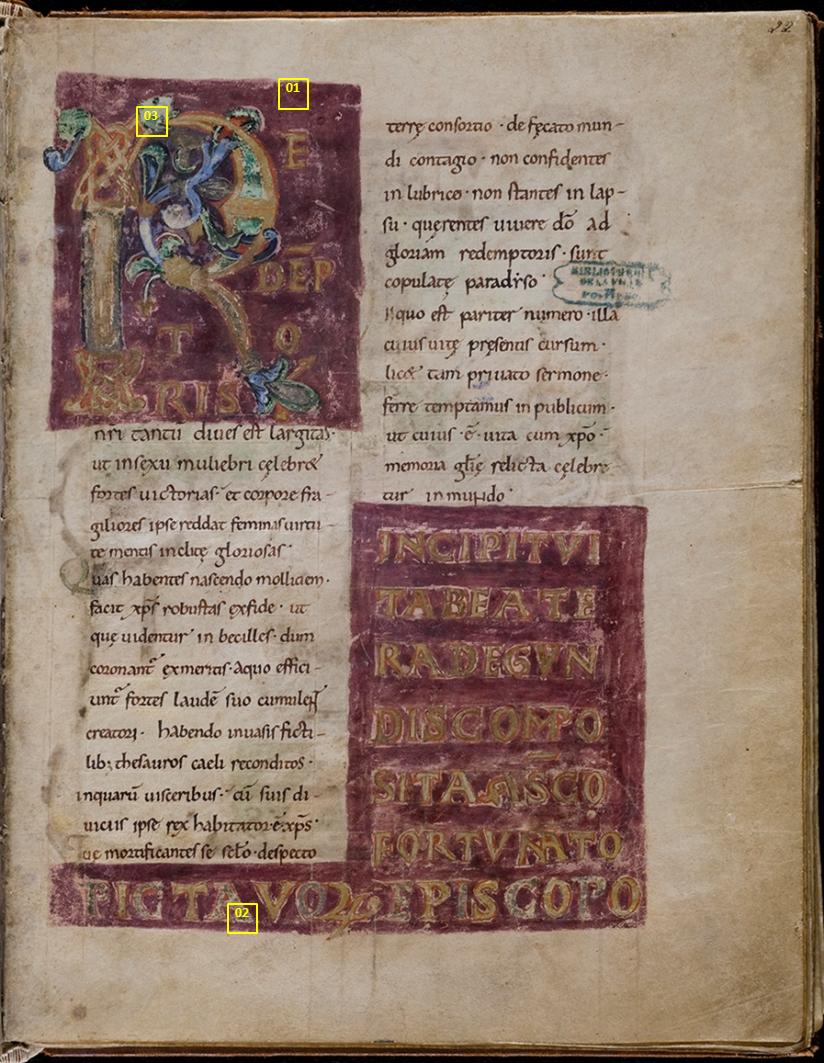 22
01
03
R E
DĒP
T O
RIS
nri tantū diues est largitas·
ut in sexu muliebri cęlebr&
fortes uictorias· et corpore fra-
giliores ipse reddat feminas uirtu-
te mentis inclitę gloriosas·
Quas habentes nascendo molliciem·
facit xp̄s robustas ex fide· ut
quę uidentur in becilles· dum
coronant̄ ex meritis· a quo effici-
unt̄ fortes laudē suo cumul&
creatori· habendo in uasis ficti-
lib; thesauros caeli reconditos·
in quarū uisceribus· cū suis di-
uiciis ipse rex habitator ē xp̄s·
que mortificantes se sc̄lo· despecto
terrę consortio· defęcato mun-
di contagio· non confidentes
in lubrico· non stantes in lap-
su· querentes uiuere dō ad
gloriam redemptoris· sunt
copulatę paradyso·
BIBLIOTHEQUE
DE LA VILLE
POITIERS
In quo est pariter numero· illa
cuius uitę presentis cursum·
lic& tam priuato sermone·
ferre temptamus in publicum·
ut cuius ·ē· uita cum xp̄o·
memoria glīę relicta cęlebre-
tur in mundo·
INCIPIT VI
TA BEATE
RADEGUN
DIS COMPO
SITA A SC̄O
FORTUNATO
PICTAVOꝝ EPISCOPO
02